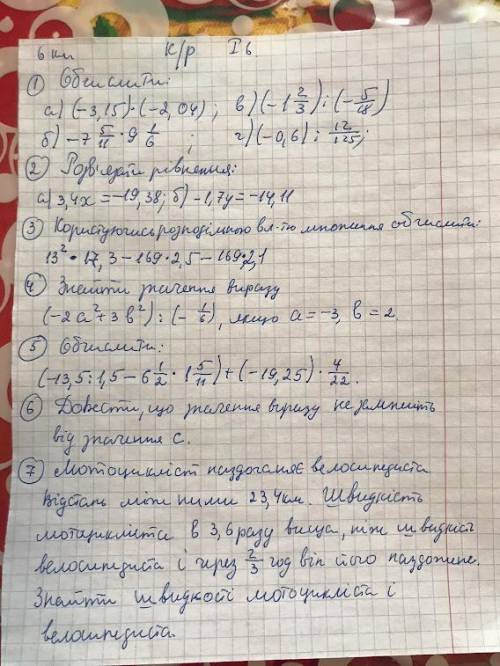 6 кл к/р I в.
① Обчислити:
а) (-3,15)·(-2,04); в) (-1 2/3) : (-5/18)
б) -7 5/11 · 9 1/6 ; г) (-0,6) : 12/125;
② Розв'язати рівняння:
а) 3,4x = -19,38; б) -1,7y = -14,11
③ Користуючись розподільною вл-тю множення обчислити:
13² · 17,3 - 169 · 2,5 - 169 · 2,1
④ Знайти значення виразу
(-2a² + 3b²) : (-1/6), якщо a = -3, b = 2.
⑤ Обчислити:
(-13,5 : 1,5 - 6 1/2 · 1 5/11) + (-19,25) · 4/22.
⑥ Довести, що значення виразу не залежить
від значення c.
⑦ Мотоцикліст наздоганяє велосипедиста
Відстань між ними 23,4 км. Швидкість
мотоцикліста в 3,6 разу вища, ніж швидкість
велосипедиста і через 2/3 год він його наздожене.
Знайти швидкості мотоцикліста і
велосипедиста.